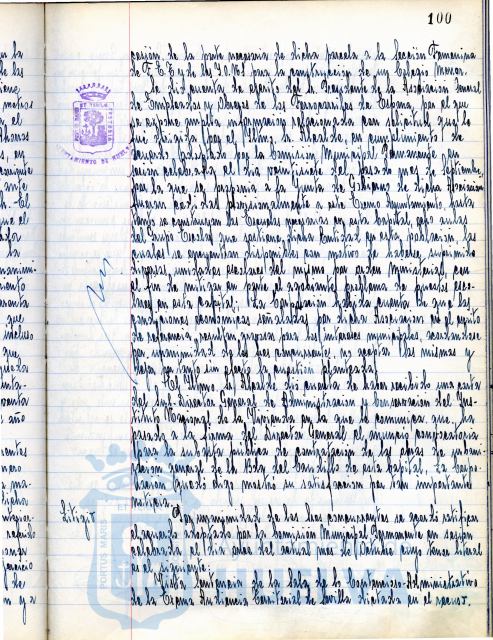 100
cesión de la parte necesaria de dicha parcela a la Sección Femenina
de F.E.T. y de las J.O.N.S. para la construcción de un Colegio Menor.
Se dió cuenta de escrito del Presidente de la Asociación General
de Empleados y Obreros de los Ferrocarriles de España, por el que
se expone amplia información relacionada con solicitud que le
fué dirigida por el Iltmo. Sr. Alcalde, en cumplimiento de
acuerdo adoptado por la Comisión Municipal Permanente en
sesión celebrada el día veintisiete del pasado mes de Septiembre,
por la que se proponía a la Junta de Gobierno de dicha Asociación
fueran cedidas provisionalmente a este Excmo. Ayuntamiento, hasta
tanto se construyan las Escuelas necesarias en esta Capital, ocho aulas
del Grupo Escolar que sostiene dicha Entidad en esta población, las
cuales se encuentran disponibles con motivo de haberse suprimido
diversas unidades escolares del mismo por orden ministerial, con
el fin de mitigar en parte el agobiante problema de puestos esco-
lares en esta capital; La Corporación habida cuenta de que las
condiciones económicas señaladas por dicha Asociación en el escrito
de referencia, resultan gravosas para los intereses municipales, acuerda
por unanimidad de los tres concurrentes, no aceptar las mismas y
dejar por tanto sin efecto la cuestión planteada.
El Iltmo. Sr. Alcalde dió cuenta de haber recibido una carta
del Sub-Director General de Administración y Conservación del Ins-
tituto Nacional de la Vivienda en la que le comunica que, ha
pasado a la firma del Director General el anuncio convocatoria
para la subasta pública de contratación de las obras de urbani-
zación general de la Bda. del Cardillo de esta capital. La Corpo-
ración quedó muy satisfacción por tan importante
noticia.
Litigio
Por unanimidad de los tres concurrentes se acordó ratificar
el acuerdo adoptado por la Comisión Municipal Permanente en sesión
celebrada el día once del actual mes de Octubre cuyo tenor literal
es el siguiente:
"Vista Sentencia de la Sala de lo Contencioso-Administrativo
de la Excma. Audiencia Territorial de Sevilla dictada en el recur-
AYUNTAMIENTO DE HUELVA
PORTUS MARIS